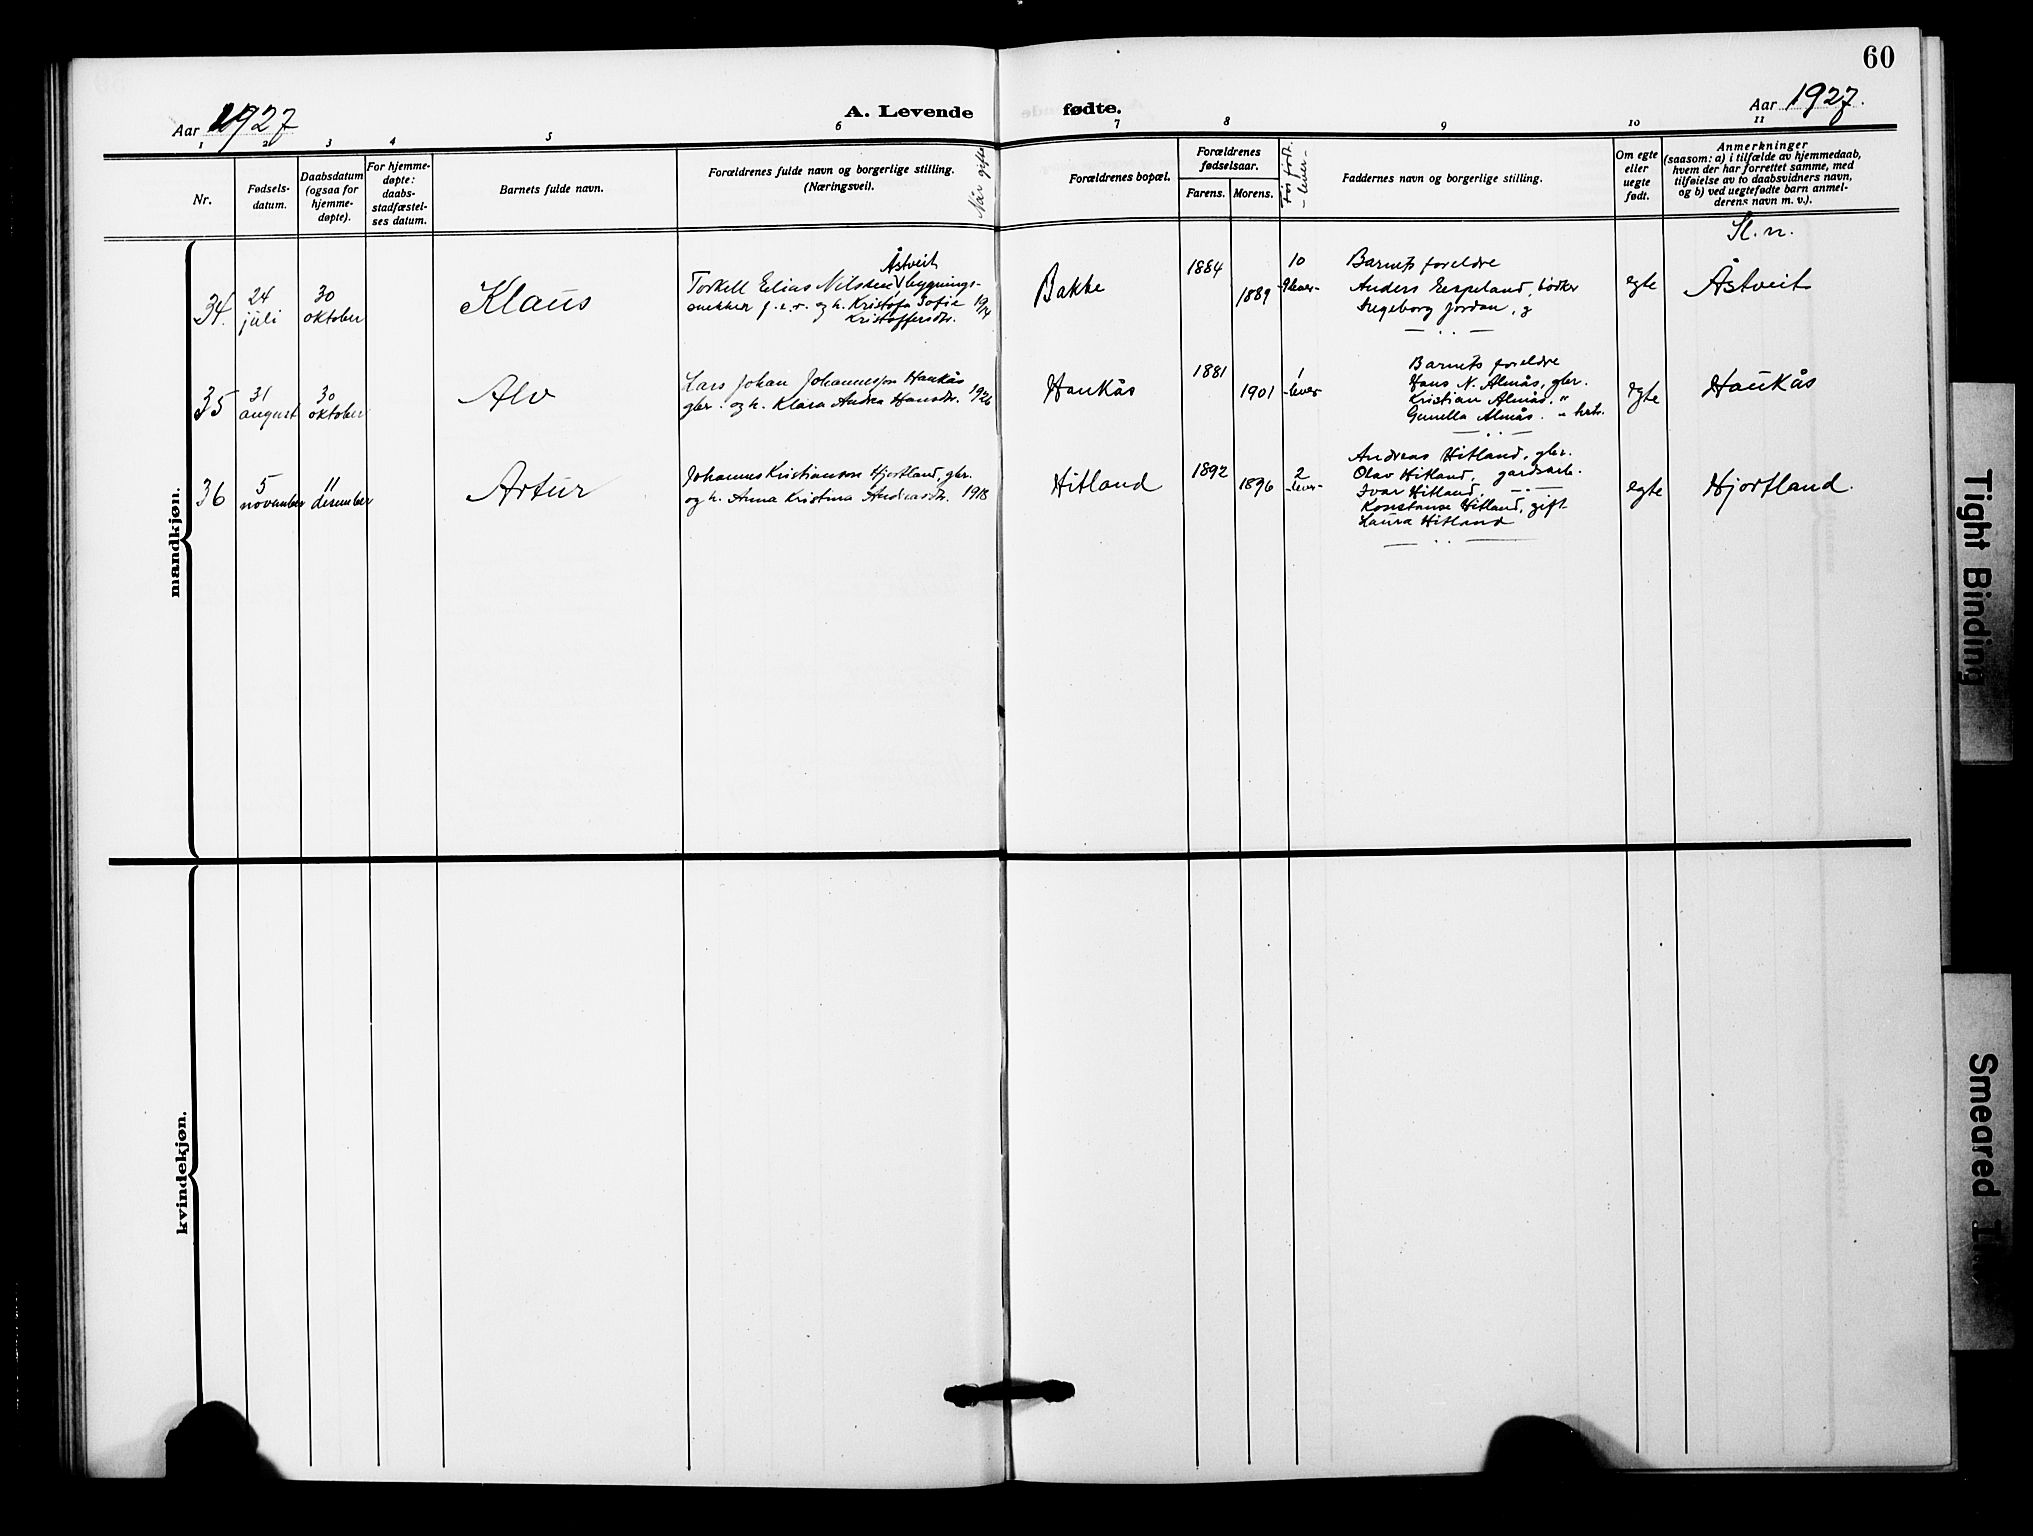 60
Aar 1927
A. Levende
fødte.
Aar 1927.
1 2 3 4 5 6 7 8 9 10 11
Nr.
Fødsels-
datum.
Daabsdatum
(ogsaa for
hjemme-
døpte).
For hjemme-
døpte:
daabs-
stadfæstel-
ses datum.
Barnets fulde navn.
Forældrenes fulde navn og borgerlige stilling.
(Næringsvei).
Når gifte
Forældrenes bopæl.
Forældrenes
fødselsaar.
Farens. Morens.
Før født.
- lever -
Faddernes navn og borgerlige stilling.
Om egte
eller
uegte
født.
Anmerkninger
(saasom: a) i tilfælde av hjemmedaab,
hvem der har forrettet samme, med
tilføielse av to daabsvidners navn,
og b) ved uegtefødte barn anmel-
derens navn m. v.).
Sl. n.
mandkjøn.
34.
24
juli
30
oktober
Klaus
Åstveit
Torkell Elias Nilsen bygnings-
snekker f.e.r. og h. Kristofa Sofie
Kristoffersdtr.
19/14
Bakke
1884
1889
10
-9 lever-
Barnets foreldre
Anders Eespeland, bødker
Ingeborg Jordan, g
egte
Åstveit
35
31
august
30
oktober
Alv
Lars Johan Johannesson Haukås
gbr. og h. Klara Andrea Hansdtr.
1926
Haukås
1881
1901
1
-lever
Barnets foreldre
Hans N. Almås, gbr.
Kristian Almås, "
Gunella Almås. "
egte
Haukås
36
5
november
11
desember
Artur
Johannes Kristianson Hjortland, gbr.
og h. Anna Kristina Andreasdtr.
1918
Hitland
1892
1896
2
-lever-
Andreas Hitland, gbr.
Olav Hitland, gardsarb.
Ivar Hitland, -"-
Konstanse Hitland, gift
Laura Hitland
egte
Hjortland.
kvindekjøn.
Tight Binding
Smeared